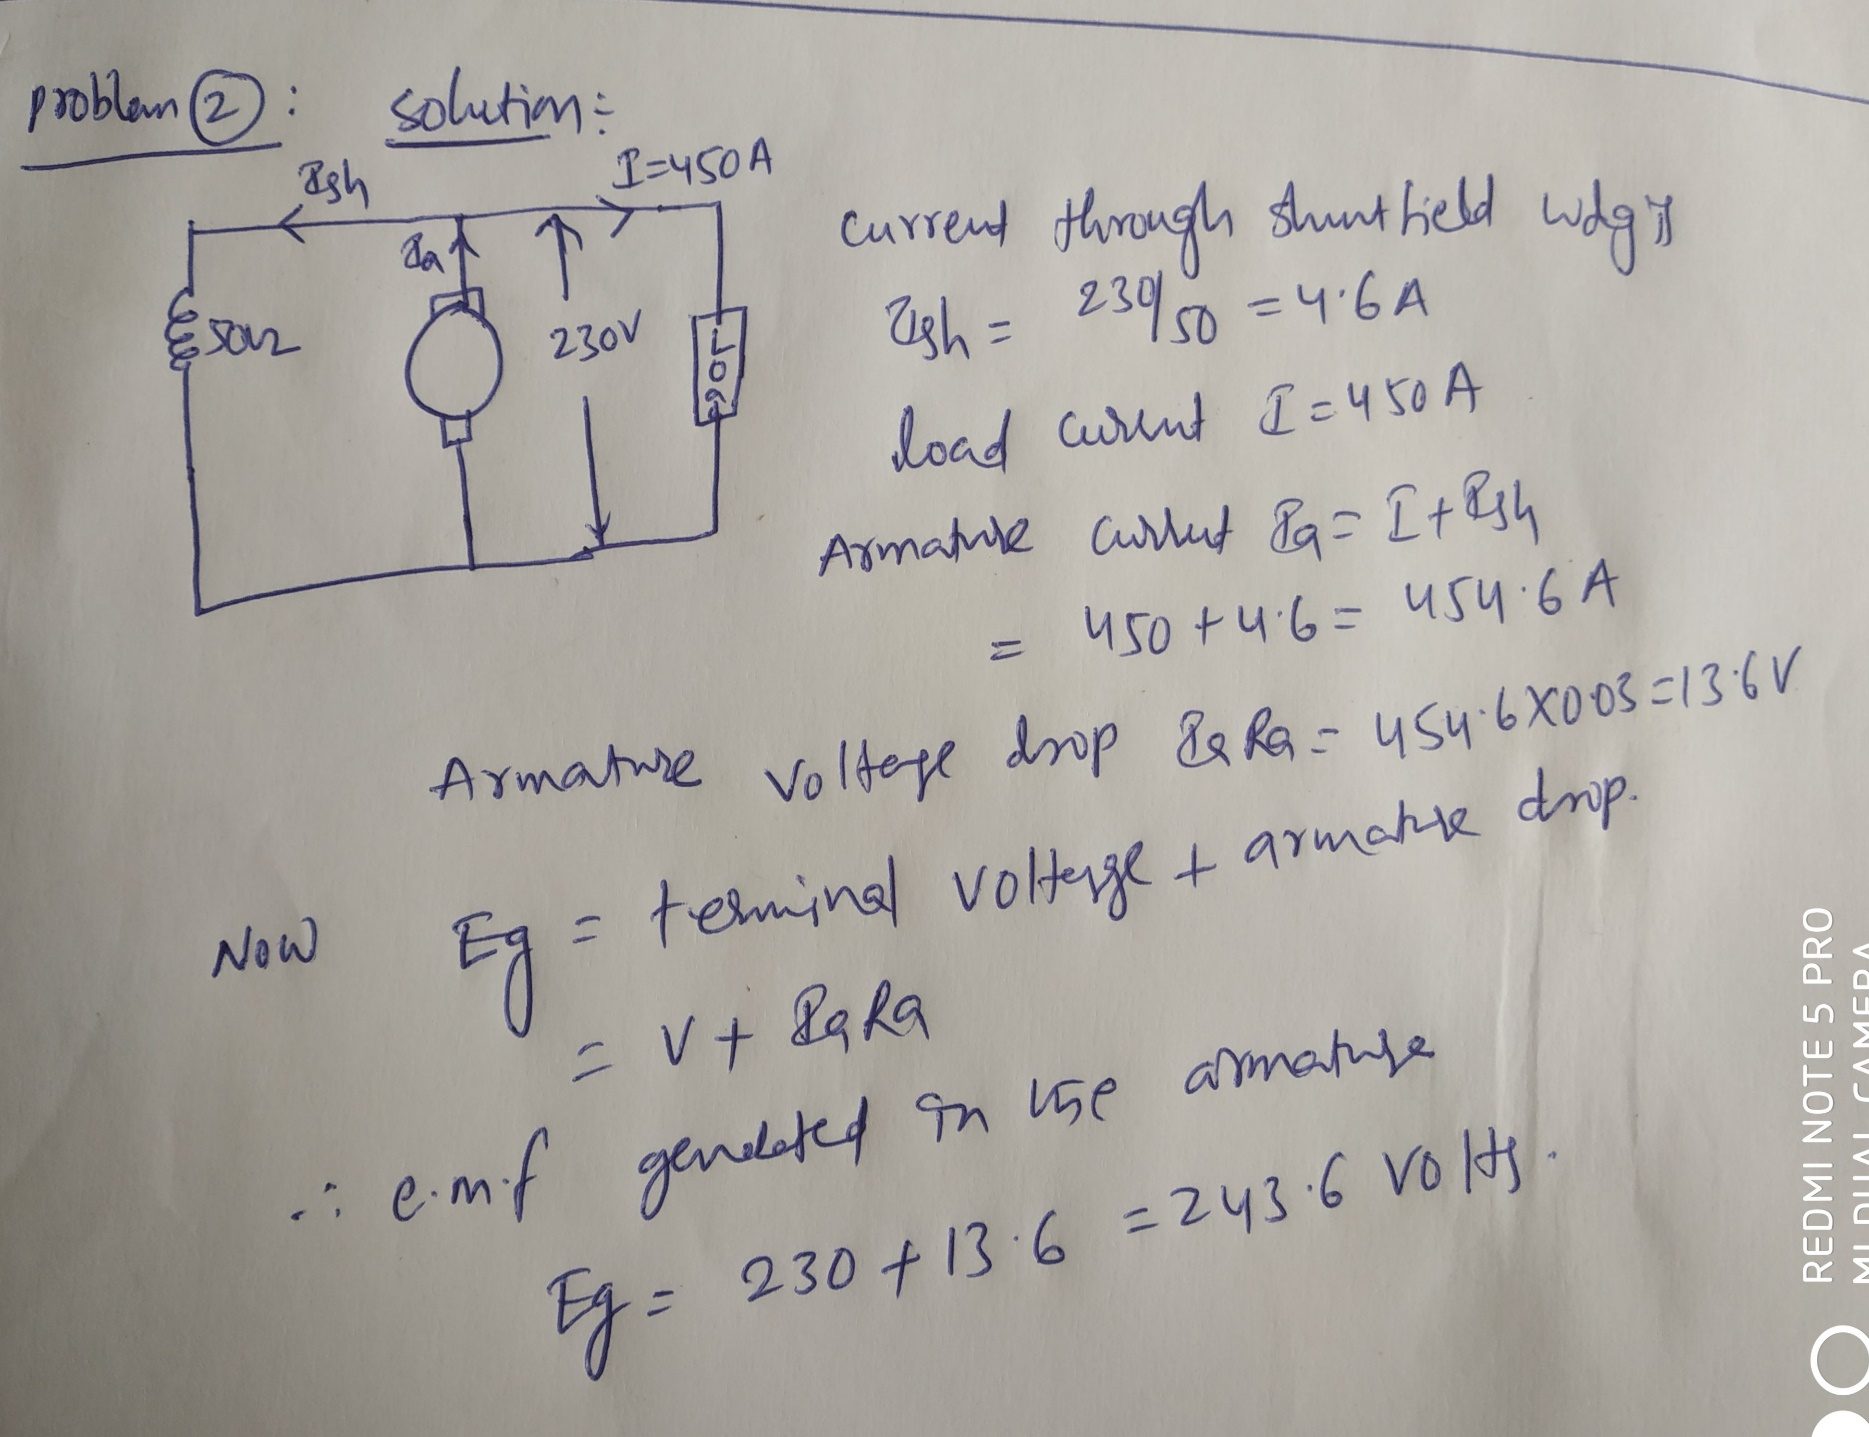 problem 2 : solution :
Ish
I=450A
Ia
50Ω
230V
LOA
current through shunt field wdg is
Ish = 230/50 = 4.6 A
load current I = 450 A
Armature current Ia = I + Ish
= 450 + 4.6 = 454.6 A
Armature voltage drop IaRa = 454.6X0.03=13.6V
Now Eg = terminal voltage + armature drop.
= V + IaRa
∴ e.m.f generated in the armature
Eg = 230 + 13.6 = 243.6 volts.
REDMI NOTE 5 PRO
MI DUAL CAMERA